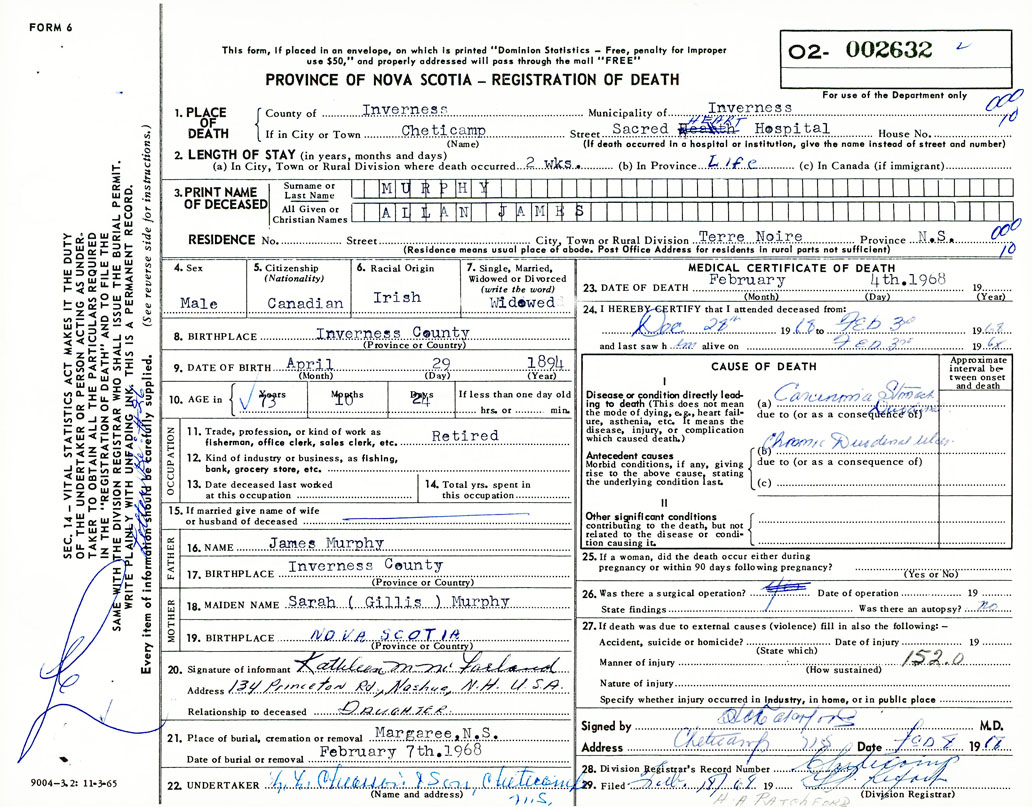 FORM 6
This form, if placed in an envelope, on which is printed "Dominion Statistics – Free, penalty for improper
use $50," and properly addressed will pass through the mail "FREE"
O2- 002632
PROVINCE OF NOVA SCOTIA – REGISTRATION OF DEATH
For use of the Department only
000
10
1. PLACE OF DEATH
County of Inverness Municipality of Inverness
If in City or Town Cheticamp Street Sacred HEART Hospital House No.
(Name) (If death occurred in a hospital or institution, give the name instead of street and number)
2. LENGTH OF STAY (in years, months and days)
(a) In City, Town or Rural Division where death occurred 2 wks. (b) In Province Life (c) In Canada (if immigrant)
3. PRINT NAME OF DECEASED
Surname or Last Name MURPHY
All Given or Christian Names ALLAN JAMES
RESIDENCE No. Street City, Town or Rural Division Terre Noire Province N.S.
(Residence means usual place of abode. Post Office Address for residents in rural parts not sufficient)
000
10
4. Sex
Male
5. Citizenship
(Nationality)
Canadian
6. Racial Origin
Irish
7. Single, Married,
Widowed or Divorced
(write the word)
Widowed
8. BIRTHPLACE Inverness County
(Province or Country)
9. DATE OF BIRTH April 29 1894
(Month) (Day) (Year)
10. AGE in Years 73 Months 10 Days 24 If less than one day old
hrs. or min.
OCCUPATION
11. Trade, profession, or kind of work as
fisherman, office clerk, sales clerk, etc. Retired
12. Kind of industry or business, as fishing,
bank, grocery store, etc.
13. Date deceased last worked
at this occupation
14. Total yrs. spent in
this occupation
15. If married give name of wife
or husband of deceased
FATHER
16. NAME James Murphy
17. BIRTHPLACE Inverness County
(Province or Country)
MOTHER
18. MAIDEN NAME Sarah ( Gillis ) Murphy
19. BIRTHPLACE NOVA SCOTIA
(Province or Country)
20. Signature of informant Kathleen M Mc Farland
Address 134 Princeton Rd, Nashua, N.H. U.S.A.
Relationship to deceased DAUGHTER.
21. Place of burial, cremation or removal Margaree, N.S.
Date of burial or removal February 7th.1968
22. UNDERTAKER & Son, Cheticamp
N.S.
(Name and address)
MEDICAL CERTIFICATE OF DEATH
23. DATE OF DEATH February 4th.1968 19
(Month) (Day) (Year)
24. I HEREBY CERTIFY that I attended deceased from:
Dec 28th 1968 to FEB 3rd 1968
and last saw him alive on FEB 3rd 1968
CAUSE OF DEATH
Approximate
interval be-
tween onset
and death
I
Disease or condition directly lead-
ing to death (This does not mean
the mode of dying, e.g., heart fail-
ure, asthenia, etc. It means the
disease, injury, or complication
which caused death.)
(a) Carcinoma Stomach
due to (or as a consequence of)
Antecedent causes
Morbid conditions, if any, giving
rise to the above cause, stating
the underlying condition last.
(b) Chronic Duodenal ulcer
due to (or as a consequence of)
(c)
II
Other significant conditions
contributing to the death, but not
related to the disease or condi-
tion causing it.
25. If a woman, did the death occur either during
pregnancy or within 90 days following pregnancy?
(Yes or No)
26. Was there a surgical operation? Date of operation 19
State findings Was there an autopsy? No
27. If death was due to external causes (violence) fill in also the following: –
Accident, suicide or homicide? Date of injury 19
(State which)
Manner of injury 152.0
(How sustained)
Nature of injury
Specify whether injury occurred in industry, in home, or in public place
Signed by M.D.
Address Cheticamp NS Date FEB 8 1968
28. Division Registrar's Record Number
29. Filed Feb. 19/68 19
(Division Registrar)
H A RATCHFORD
SEC. 14 – VITAL STATISTICS ACT MAKES IT THE DUTY
OF THE UNDERTAKER OR PERSON ACTING AS UNDER-
TAKER TO OBTAIN ALL THE PARTICULARS REQUIRED
IN THE "REGISTRATION OF DEATH" AND TO FILE THE
SAME WITH THE DIVISION REGISTRAR WHO SHALL ISSUE THE BURIAL PERMIT.
WRITE PLAINLY WITH UNFADING INK. THIS IS A PERMANENT RECORD.
Every item of information should be carefully supplied. (See reverse side for instructions.)
9004–3.2: 11-3-65